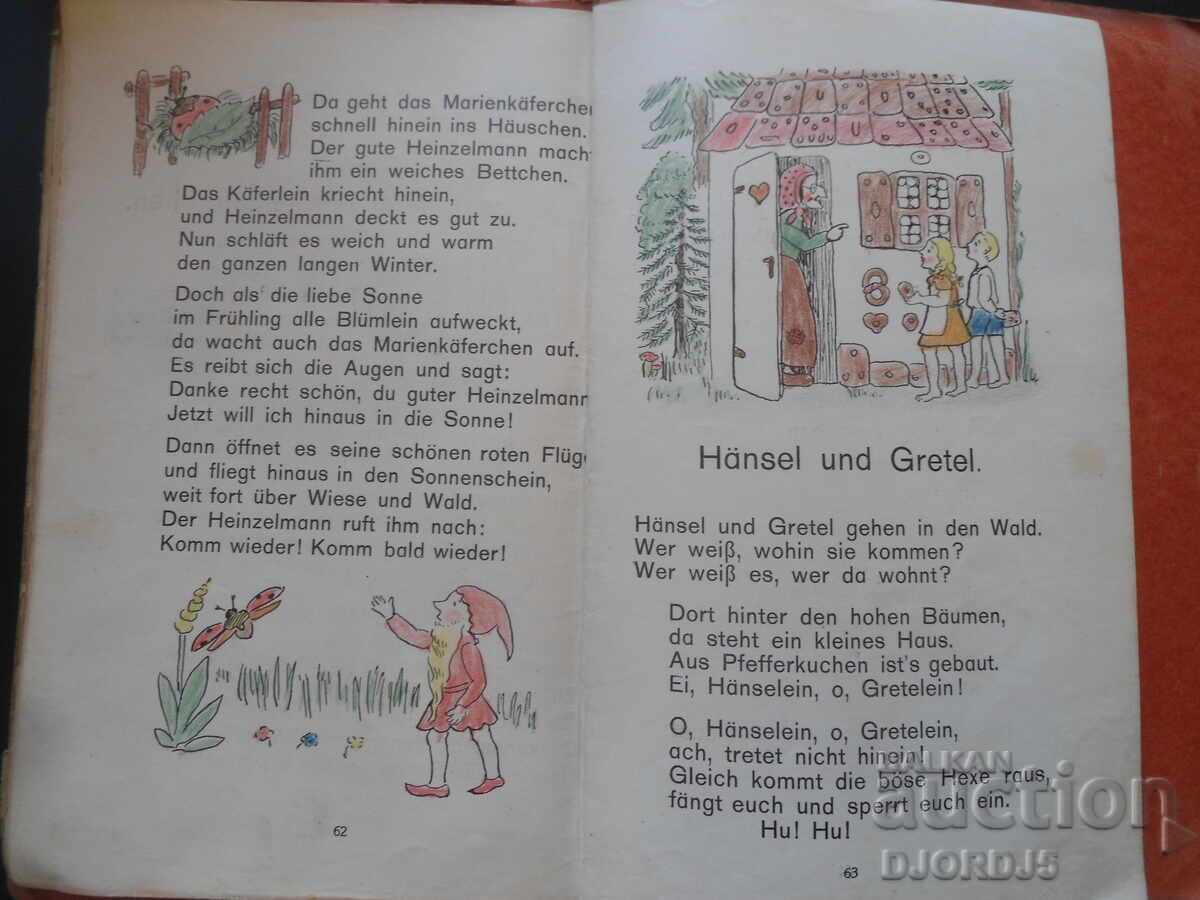 Da geht das Marienkäferchen
schnell hinein ins Häuschen.
Der gute Heinzelmann mach
ihm ein weiches Bettchen.
Das Käferlein kriecht hinein,
und Heinzelmann deckt es gut zu.
Nun schläft es weich und warm
den ganzen langen Winter.
Doch als die liebe Sonne
im Frühling alle Blümlein aufweckt,
da wacht auch das Marienkäferchen auf.
Es reibt sich die Augen und sagt:
Danke recht schön, du guter Heinzelmann
Jetzt will ich hinaus in die Sonne!
Dann öffnet es seine schönen roten Flüge
und fliegt hinaus in den Sonnenschein,
weit fort über Wiese und Wald.
Der Heinzelmann ruft ihm nach:
Komm wieder! Komm bald wieder!
62
Hänsel und Gretel.
Hänsel und Gretel gehen in den Wald.
Wer weiß, wohin sie kommen?
Wer weiß es, wer da wohnt?
Dort hinter den hohen Bäumen,
da steht ein kleines Haus.
Aus Pfefferkuchen ist's gebaut.
Ei, Hänselein, o, Gretelein!
O, Hänselein, o, Gretelein,
ach, tretet nicht hinein!
Gleich kommt die böse Hexe raus,
fängt euch und sperrt euch ein.
Hu! Hu!
63
BALKAN
auction
DJORDJ5